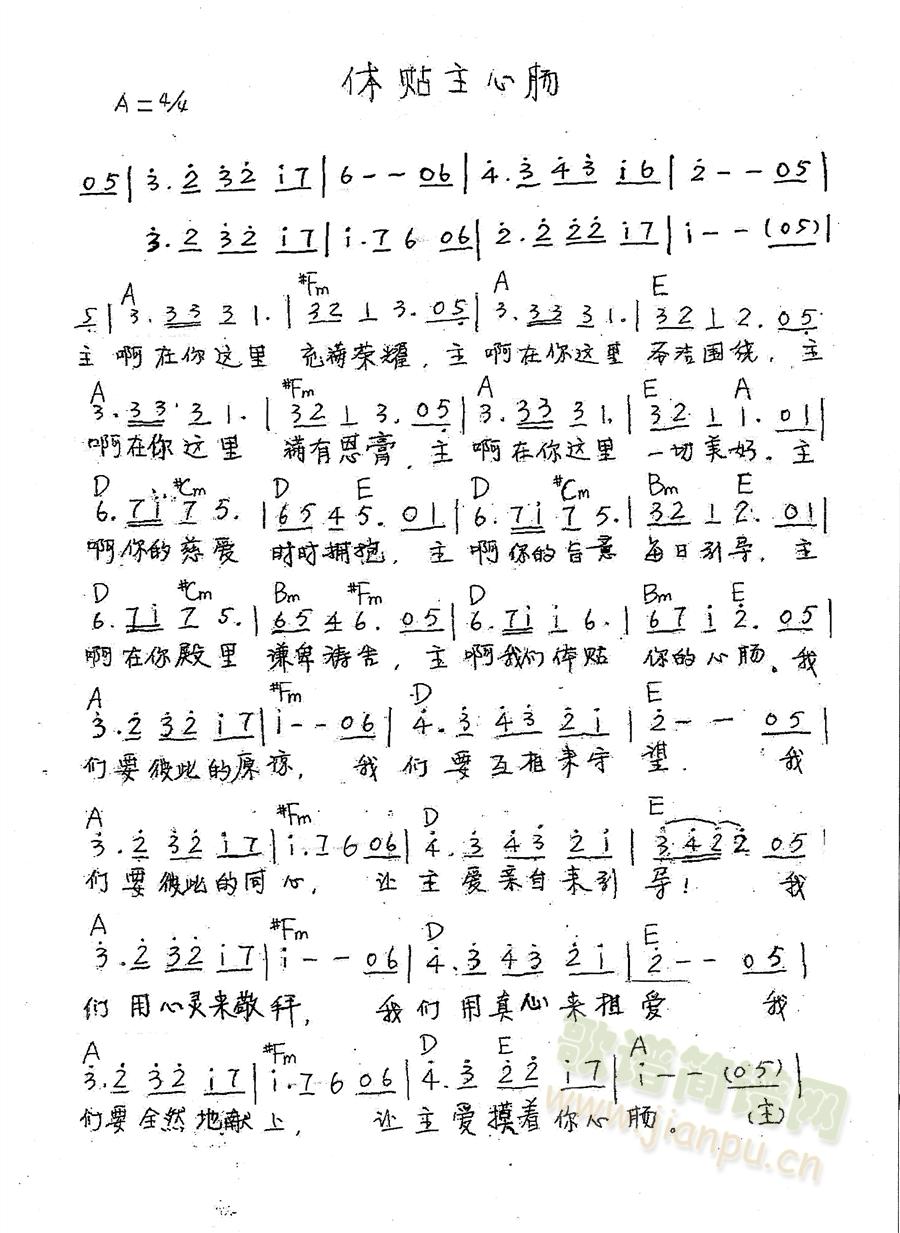 体贴主心肠
A=4/4
05|3.2 32 i7|6--06|4.3 43 i6|2--05|
3.2 32 i7|i.7 6 06|2.2 22 i7|i--(05)|
A #Fm A E
5|3.33 31.|32 1 3.05|3.33 31.|32 1 2.05
主啊在你这里 充满荣耀,主啊在你这里 圣洁围绕,主
A #Fm A E A
3.33 31.|32 1 3.05|3.33 31.|32 1 1.01|
啊在你这里 满有恩膏,主啊在你这里 一切美好。主
D #Cm D E D #Cm Bm E
6.7i 7 5.|65 4 5.01|6.7i 7 5.|32 1 2.01|
啊你的慈爱 时时拥抱,主啊你的旨意 每日引导,主
D #Cm Bm #Fm D Bm E
6.7i 7 5.|65 4 6.05|6.7i i 6.|67 i 2.05|
啊在你殿里 谦卑祷告,主啊我们体贴 你的心肠。我
A #Fm D E
3.2 32 i7|i--06|4.3 43 2i|2--05|
们要彼此的原谅, 我们要互相来守望. 我
A #Fm D E
3.2 32 i7|i.7 6 06|4.3 43 2i|3.422 05|
们要彼此的同心, 让主爱亲自来引导! 我
A #Fm D E
3.2 32 i7|i--06|4.3 43 2i|2--05|
们用心灵来敬拜, 我们用真心来相爱 我
A #Fm D E A
3.2 32 i7|i.7 6 06|4.3 22 i7|i--(05)|
们要全然地献上, 让主爱摸着你心肠。 (主)
歌谱简谱网
www.jianpu.cn